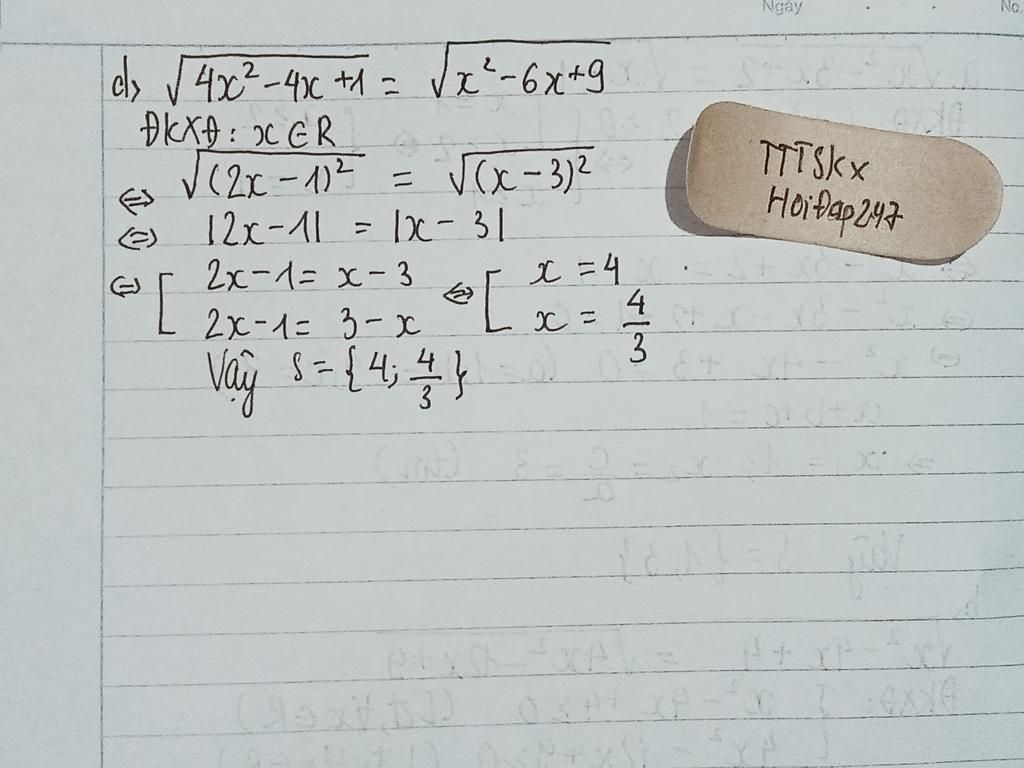 Ngày No.
d> √(4x² - 4x + 1) = √(x² - 6x + 9)
ĐKXĐ: x ∈ R
⇔ √((2x - 1)²) = √((x - 3)²)
⇔ |2x - 1| = |x - 3|
⇔ [ 2x - 1 = x - 3 ⇔ [ x = 4
2x - 1 = 3 - x x = 4/3
Vậy S = {4; 4/3}
TTTSKx
HoiĐap247